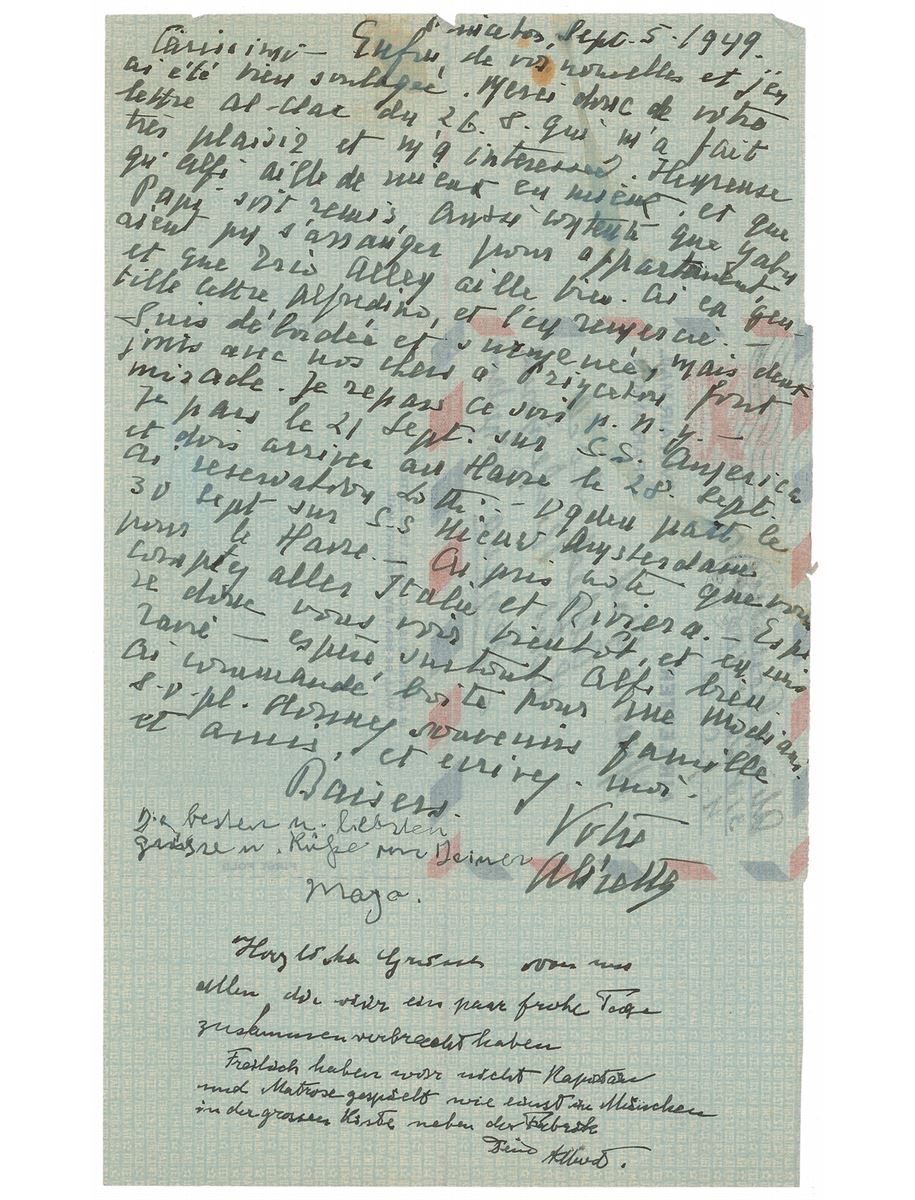 Sept. 5. 1949.
Carissimi – Enfin, de vos nouvelles et j'en
ai été bien soulagée. Merci donc de votre
lettre du 26. 8. qui m'a fait
très plaisir et m'a intéressée. Heureuse
qu'Alfi aille de mieux en mieux, et que
Papi soit remis, aussi contente que Gaby
aient pu s'arranger pour appartement
et que aille bien. Ai eu gen-
tille lettre Alfredino, et l'en remercie. –
Suis débordée et surmenée, mais deux
jours avec nos chers à Princeton font
miracle. Je repars ce soir p. N. Y. –
Je pars le 21 Sept. sur S.S. America
et dois arriver au Havre le 28. Sept.
Ai reservation Lotti. – Ogden part le
30 Sept sur S.S Nieuw Amsterdam
pour le Havre. – Ai pris note que vous
comptez aller Italie et Riviera. – Espè-
re donc vous voir bientôt, et en suis
ravie – espère surtout Alfi bien.
Ai commandé boîte pour Mme Modiani.
s.v.pl. Donnez souvenirs famille
et amis, et écrivez-moi.
Baisers.
Votre
Die besten u. liebsten
Grüsse u. Küsse von Deiner
Maja.
Herzliche Grüsse von uns
allen, die wir ein paar frohe Tage
zusammen verbracht haben
Freilich haben wir nicht Kapitän
und Matrose gespielt wie einst in München
in der grossen Kiste neben der Fabrik
Dein Albert.